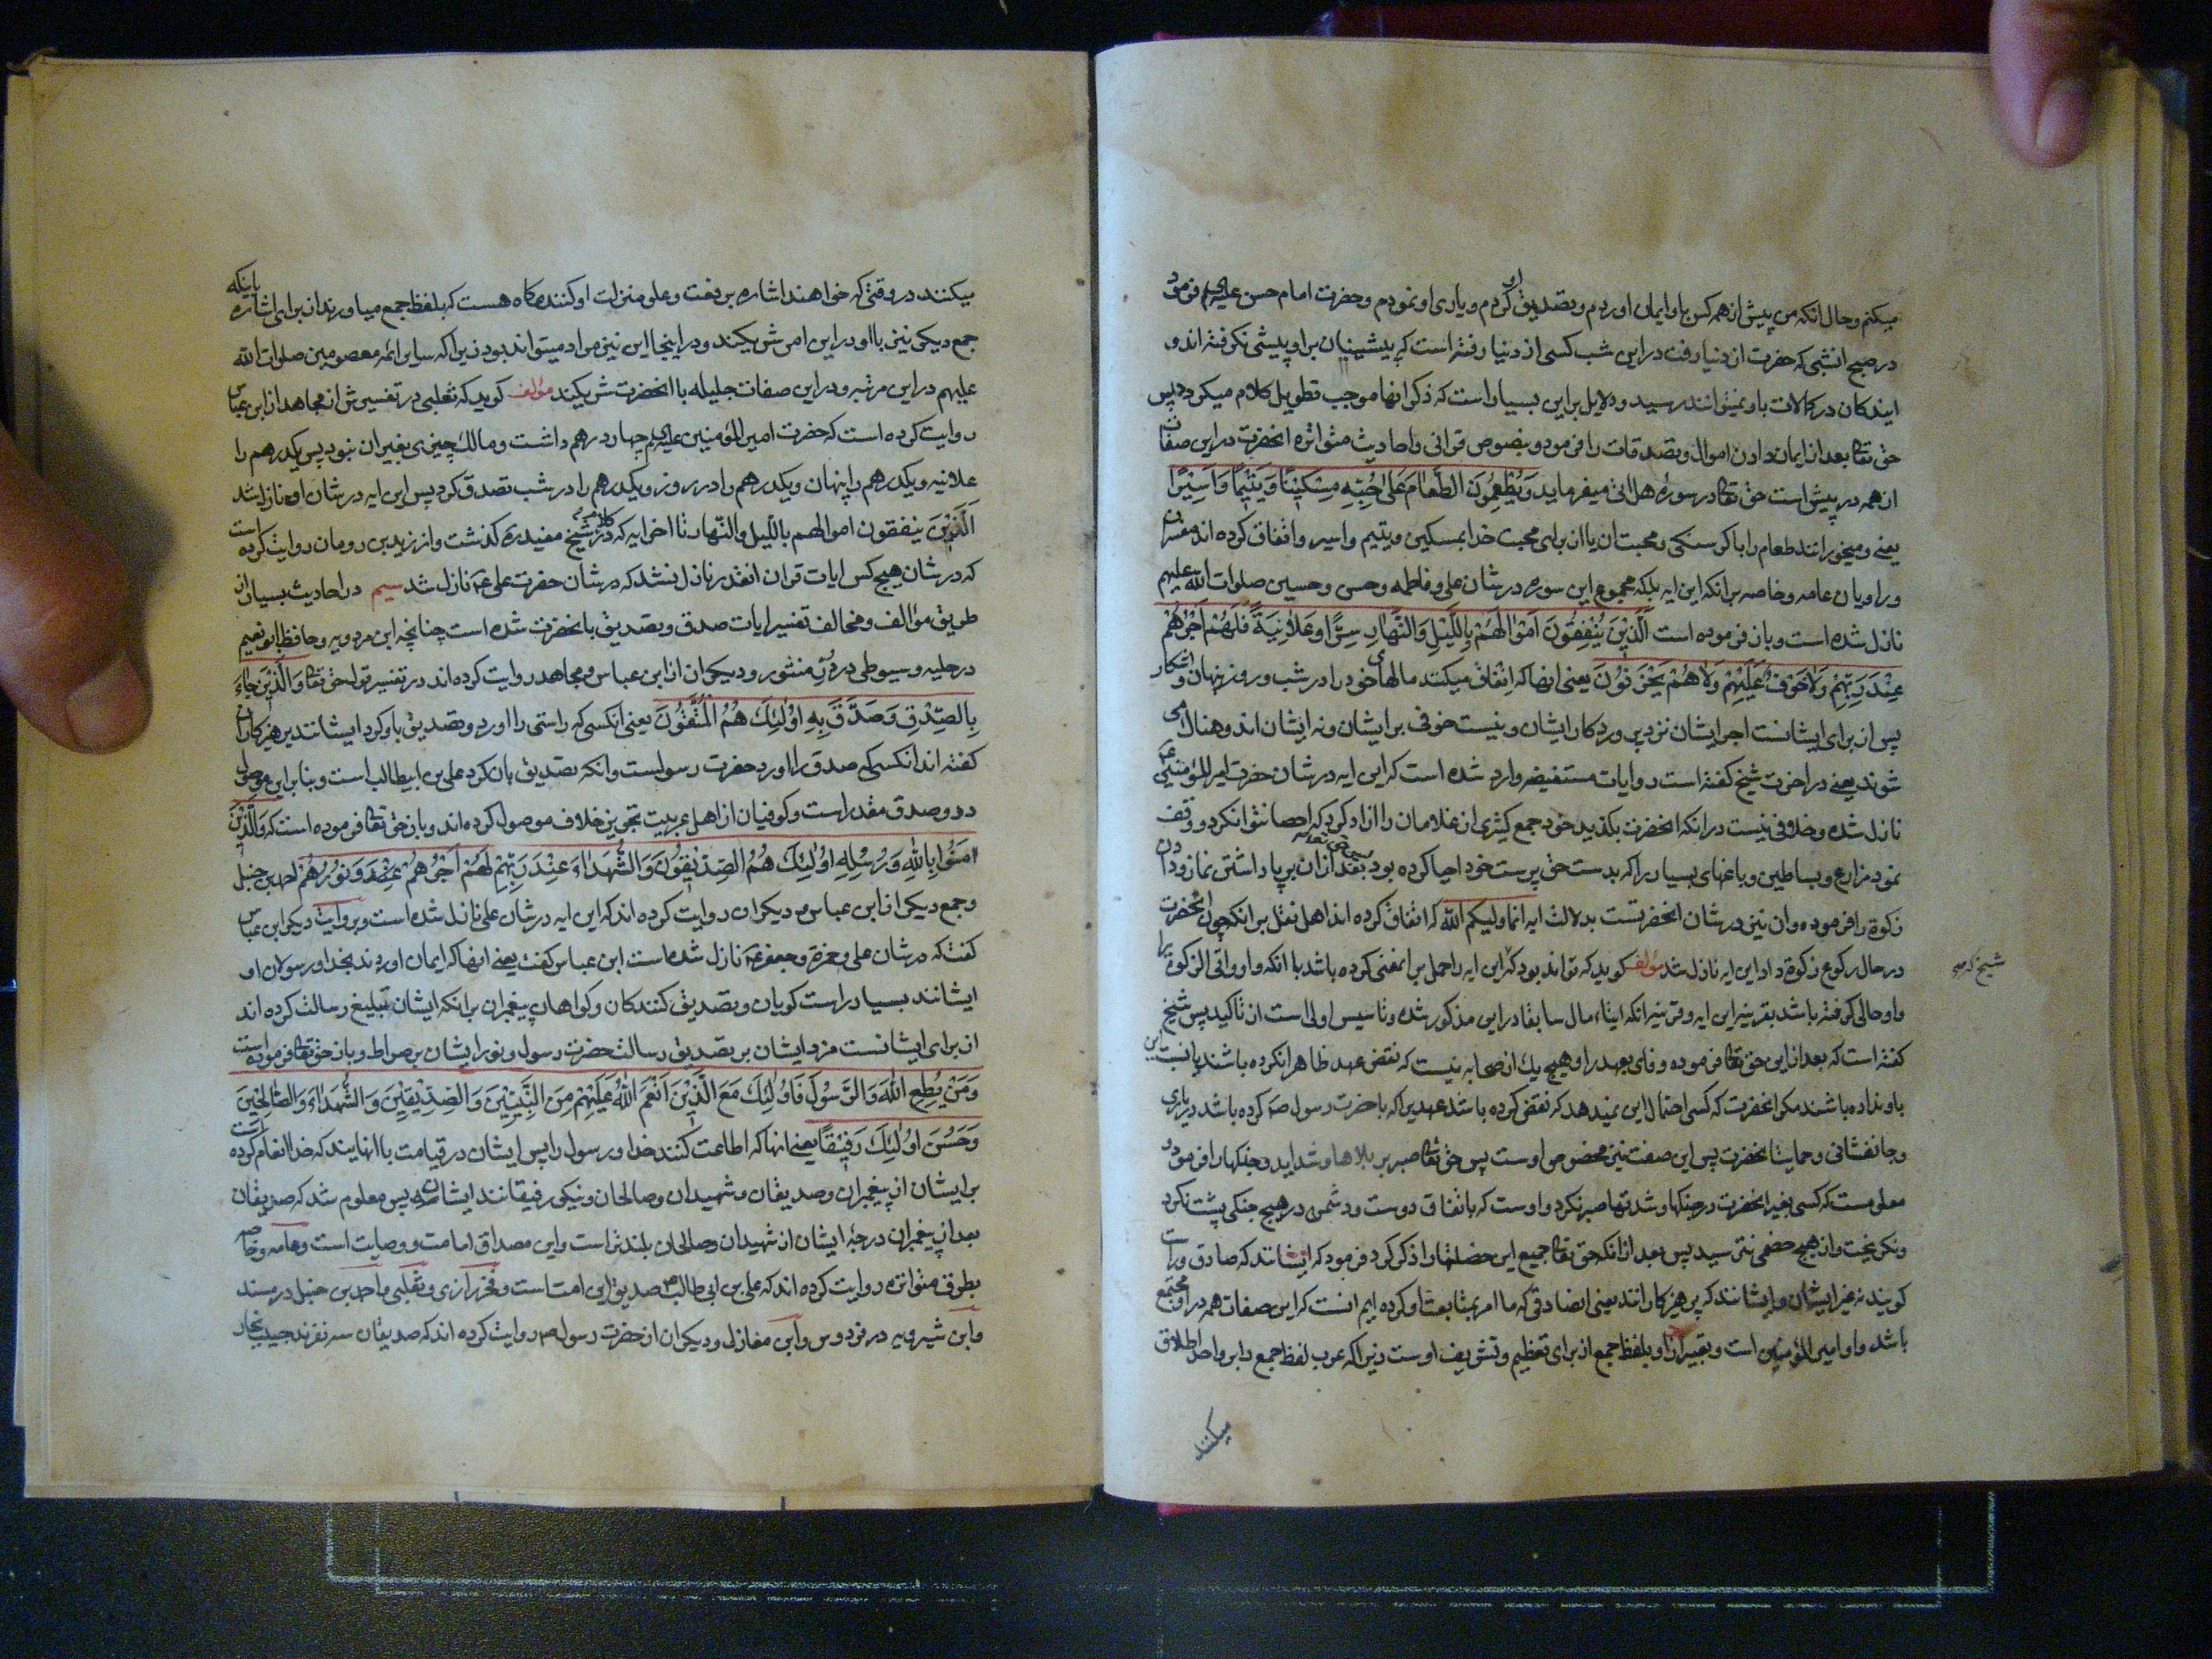 میکنم و حال انکه من پیش از همه کس باو ایمان اوردم و تصدیق او کردم و یاری او نمودم و حضرت امام حسن علیه السلم فرمود
در صبح انشبی که حضرت از دنیا رفت در این شب کسی از دنیا رفته است که پیشینیان بر او پیشی نکرفته اند و
ایندکان در کمالات باو نمیتوانند رسید و دلایل بر این بسیار است که ذکر انها موجب تطویل کلام میکردد پس
حق تعا بعد از ایمان دادن اموال و تصدقات را فرمود و بنصوص قرانی و احادیث متواتره انحضرت در این صفات
از همه در پیش است حق تعا در سوره هل اتی میفرماید وَیُطْعِمُونَ الطَّعٰامَ عَلیٰ حُبِّهِ مِسْکیٖنًا وَیَتیٖمًا وَاَسیٖرًا
یعنی و میخورانند طعام را با کرسنکی و محبت ان یا از برای محبت خدا بمسکین و یتیم و اسیر و اتفاق کرده اند مفسران
و راویان عامه و خاصه بر انکه این ایه بلکه مجموع این سوره در شان علی و فاطمه و حسن و حسین صلوات الله علیهم
نازل شده است و بان فرموده است اَلَّذیٖنَ یُنْفِقُونَ اَمْوٰالَهُمْ بِاللَّیْلِ وَالنَّهٰارِ سِرًّا وَعَلاٰنِیَةً فَلَهُمْ اَجْرُهُمْ
عِنْدَ رَبِّهِمْ وَلاٰ خَوْفٌ عَلَیْهِمْ وَلاٰ هُمْ یَحْزَنُونَ یعنی انها که انفاق میکنند مالهای خود را در شب و روز پنهان و اشکار
پس از برای ایشانست اجر ایشان نزد پروردکار ایشان و نیست خوفی بر ایشان و نه ایشان اندوهناک می
شوند یعنی در اخرت شیخ کفته است روایات مستفیضه وارد شده است که این ایه در شان حضرت امیر المؤمنین ع
نازل شده و خلافی نیست در انکه انحضرت بکد ید خود جمع کثیری از غلامان را ازاد کرد که احصا نتوان کرد و وقف
نمود مزارع و بساطین و باغهای بسیار را که بدست حق پرست خود احیا کرده بود بعد از ان بر پا داشتن نماز و دادن
زکوة را فرموده و ان نیز در شان انحضرتست بدلالت ایه انما ولیکم الله که اتفاق کرده اند اهل نقل بر انکه چون انحضرت
در حال رکوع زکوة داد این ایه نازل شد مؤلف کوید که تواند بود که این ایه را حمل بر این معنی کرده باشد با انکه واو و اتی الزکوة را
شیخ کرمی
واو حالی کرفته باشد بقرینه این ایه و قرینه انکه ایتاء مال سابقا در این مذکور شده و تاسیس اولی است از تاکید پس شیخ
کفته است که بعد از این حق تعا فرموده وفای بعهد را و هیچ یک از صحابه نیست که نقض عهد ظاهرا نکرده باشند یا نسبت این
باو نداده باشند مکر انحضرت که کسی احتمال این نمیدهد که نقض کرده باشد عهدیرا که با حضرت رسول ص کرده باشد در یاری
و جانفشانی و حمایت انحضرت پس این صفت نیز مخصوص اوست پس حق تعا صبر بر بلاها و شداید و جنکها را فرمود و
معلومست که کسی بغیر انحضرت در جنکها و شدتها صبر نکرد و اوست که باتفاق دوست و دشمن در هیچ جنکی پشت نکرد
و نکریخت و از هیچ خصمی نترسید پس بعد از انکه حق تعا جمیع این خصلتها را ذکر کرد فرمود که ایشانند که صادق و راست
کویند نه غیر ایشان و ایشانند که پرهیزکارانند یعنی ان صادقی که ما امر بمتابعت او کرده ایم انست که این صفات همه در او مجتمع
باشد و او امیر المؤمنین است و تعبیر از او بلفظ جمع از برای تعظیم و تشریف اوست زیرا که عرب لفظ جمع را بر واحد اطلاق
میکنند
میکنند در وقتی که خواهند اشاره بر رفعت و علو منزلت او کنند و کاه هست که بلفظ جمع میاورند از برای اشاره باینکه
جمع دیکر نیز با او در این امر شریکند و در اینجا این نیز مراد میتواند بود زیرا که سایر ائمه معصومین صلوات الله
علیهم در این مرتبه و در این صفات جلیله با انحضرت شریکند مؤلف کوید که ثعلبی در تفسیرش از مجاهد از ابن عباس
روایت کرده است که حضرت امیر المؤمنین علیه السلم چهار درهم داشت و مالک چیزی بغیر ان نبود پس یکدرهم را
علانیه و یکدرهم را پنهان و یکدرهم را در روز و یکدرهم را در شب تصدق کرد پس این ایه در شان او نازل شد
اَلَّذیٖنَ ینفقون اموالهم باللیل والنهار تا اخر ایه که در کلام شیخ مفید ره کذشت و از یزید بن رومان روایت کرده است
که در شان هیچ کس ایات قران انقدر نازل نشد که در شان حضرت علی ع نازل شد سیم در احادیث بسیار از
طریق مؤالف و مخالف تفسیر ایات صدق و تصدیق بانحضرت شده است چنانچه ابن مردویه و حافظ ابو نعیم
در حلیه و سیوطی در در منثور و دیکران از ابن عباس و مجاهد روایت کرده اند در تفسیر قول حق تعا وَالَّذیٖ جٰاءَ
بِالصِّدْقِ وَصَدَّقَ بِهِ اُولٰئِكَ هُمُ الْمُتَّقُونَ یعنی انکسی که راستی را اورد و تصدیق باو کرد ایشانند پرهیزکاران
کفته اند انکسی که صدق را اورد حضرت رسولست و انکه تصدیق بان کرد علی بن ابیطالب است و بنا بر این موصول
در و صدق مقدر است و کوفیان از اهل عربیت تجویز خلاف موصول کرده اند و بان حق تعا فرموده است که وَالَّذیٖنَ
اٰمَنُوا بِاللّٰهِ وَرُسُلِهِ اُولٰئِكَ هُمُ الصِّدّیٖقُونَ وَالشُّهَدٰاءُ عِنْدَ رَبِّهِمْ لَهُمْ اَجْرُهُمْ وَنُورُهُمْ احمد بن حنبل
و جمع دیکر از ابن عباس و دیکران روایت کرده اند که این ایه در شان علی نازل شده است و بروایت دیکر ابن عباس
کفت که در شان علی و حمزه و جعفر ع نازل شده است ابن عباس کفت یعنی انها که ایمان اوردند بخدا و رسولان او
ایشانند بسیار راست کویان و تصدیق کنندکان و کواهان پیغمبران بر انکه ایشان تبلیغ رسالت کرده اند
از برای ایشانست مزد ایشان بر تصدیق رسالت حضرت رسول و نور ایشان بر صراط و بان حق تعا فرموده است
وَمَنْ یُطِعِ اللّٰهَ وَالرَّسُولَ فَاُولٰئِكَ مَعَ الَّذیٖنَ اَنْعَمَ اللّٰهُ عَلَیْهِمْ مِنَ النَّبِیّیٖنَ وَالصِّدّیٖقیٖنَ وَالشُّهَدٰاءِ وَالصّٰالِحیٖنَ
وَحَسُنَ اُولٰئِكَ رَفیٖقًا یعنی انها که اطاعت کنند خدا و رسول را پس ایشان در قیامت با انهایند که خدا انعام کرده است
بر ایشان از پیغمبران و صدیقان و شهیدان و صالحان و نیکو رفیقانند ایشان پس معلوم شد که صدیقان
بعد از پیغمبران درجهٔ ایشان از شهیدان و صالحان بلندتر است و این مصداق امامت و وصایت است و عامه و خاصه
بطرق متواتره روایت کرده اند که علی بن ابی طالب صدیق این امت است و فخر رازی و ثعلبی و احمد بن حنبل در مسند
و ابن شیرویه در فردوس و ابن مغازلی و دیکران از حضرت رسول ص روایت کرده اند که صدیقان سه نفرند حبیب نجار